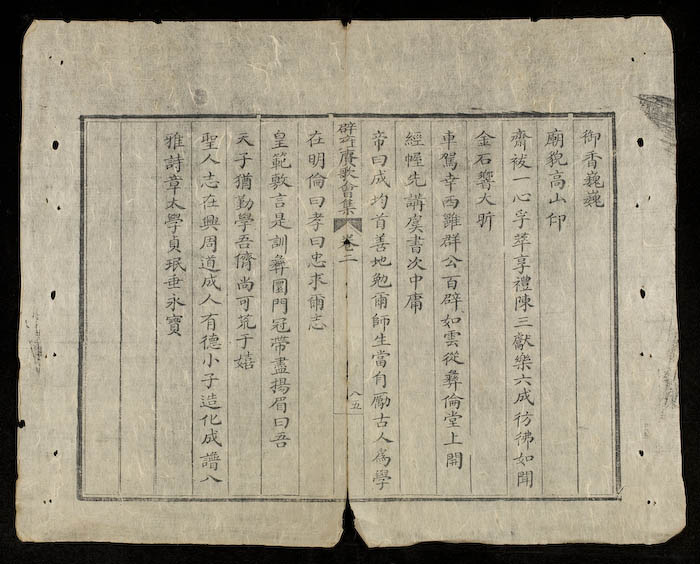 御香巍巍
廟貌高山仰
齋祓一心孚萃享禮陳三獻樂六成彷彿如聞
金石響大昕
車駕幸西雝群公百辟如雲從彞倫堂上開
經幄先講虞書次中庸
帝曰成均首善地勉爾師生當自勵古人為學
辟賡歌會集 卷二 八五
在明倫曰孝曰忠求爾志
皇範敷言是訓彞圜門冠帶盡揚眉曰吾
天子猶勤學吾儕尚可荒于嬉
聖人志在興周道成人有德小子造化成譜入
雅詩章太學貞珉垂永寶